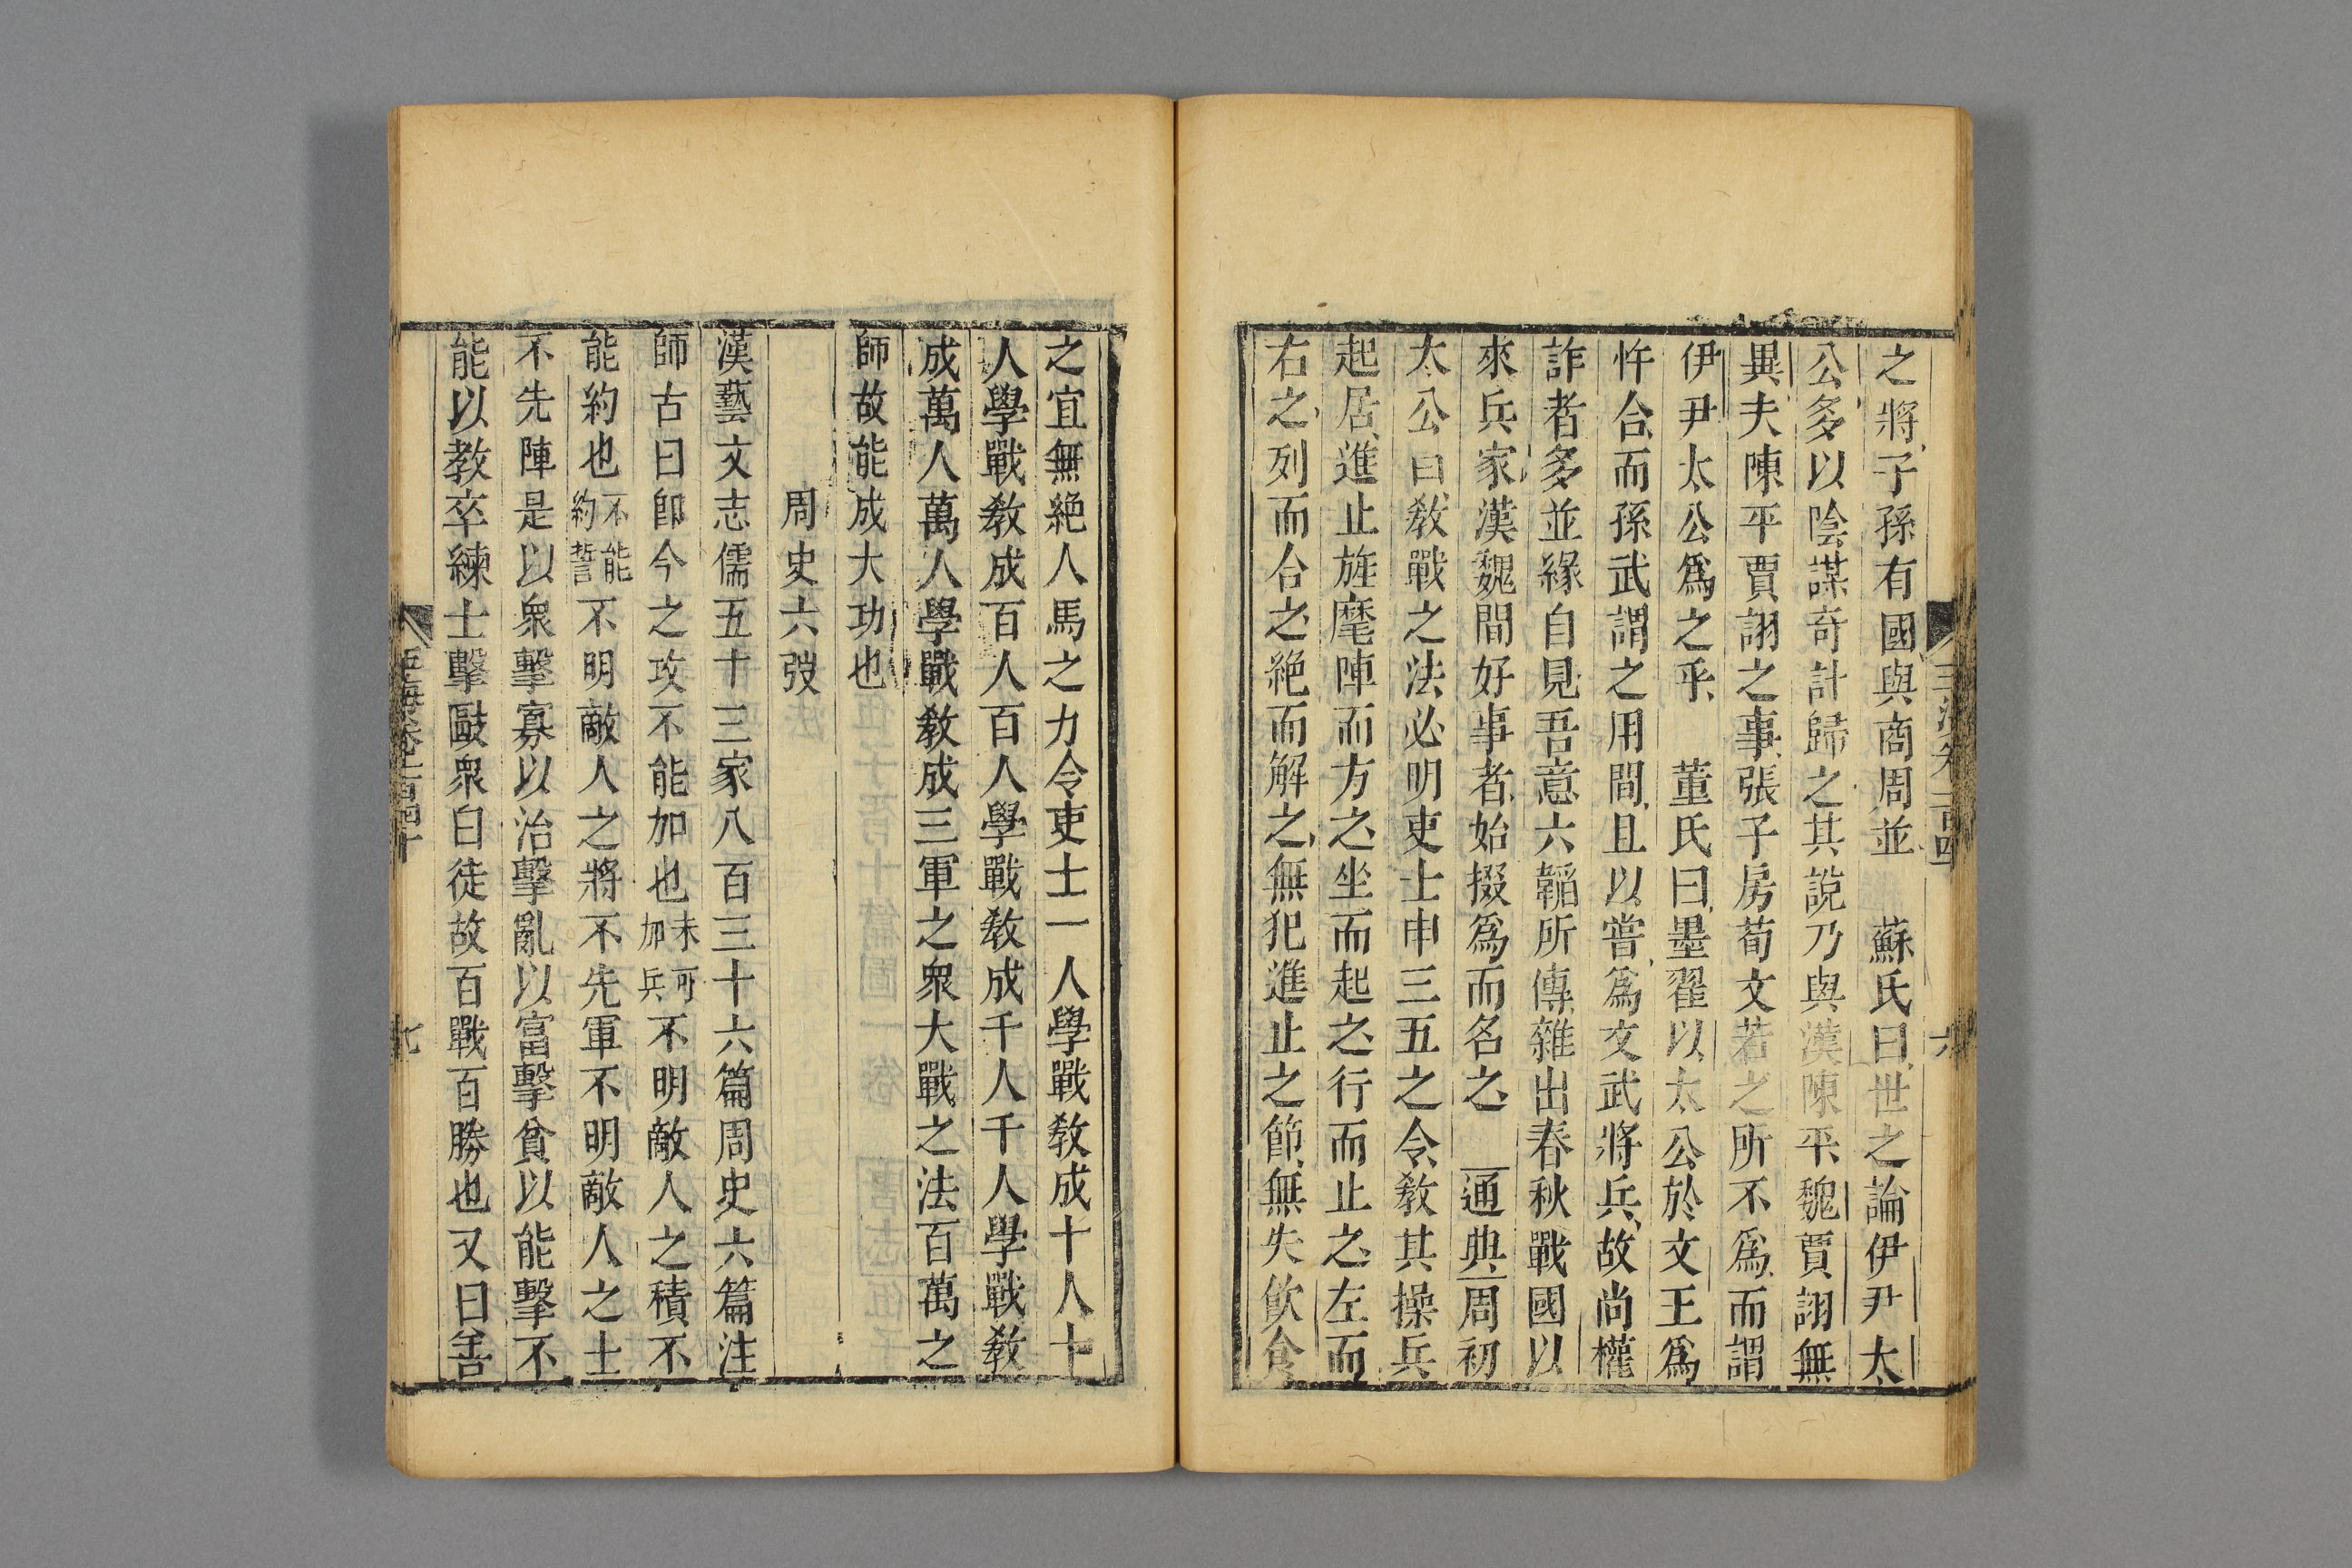 之將子孫有國與商周並　蘇氏曰世之論伊尹太
公多以陰謀奇計歸之其說乃與漢陳平魏賈詡無
異夫陳平賈詡之事張子房荀文若之所不爲而謂
伊尹太公爲之乎　董氏曰墨翟以太公於文王爲
忤合而孫武謂之用間且以嘗爲文武將兵故尚權
詐者多並緣自見吾意六韜所傳雜出春秋戰國以
來兵家漢魏間好事者始掇爲而名之　通典周初
太公曰敎戰之法必明吏士申三五之令敎其操兵
起居進止旌麾陣而方之坐而起之行而止之左而
右之列而合之絕而解之無犯進止之節無失飮食
之宜無絕人馬之力令吏士一人學戰敎成十人十
人學戰敎成百人百人學戰敎成千人千人學戰敎
成萬人萬人學戰敎成三軍之衆大戰之法百萬之
師故能成大功也
周史六弢
漢藝文志儒五十三家八百三十六篇周史六篇注
師古曰卽今之攻不能加也未可加兵不明敵人之積不
能約也不能約誓不明敵人之將不先軍不明敵人之士
不先陣是以衆擊寡以治擊亂以富擊貧以能擊不
能以教卒練士擊敺衆白徒故百戰百勝也又曰善
玉海卷一百四十
七